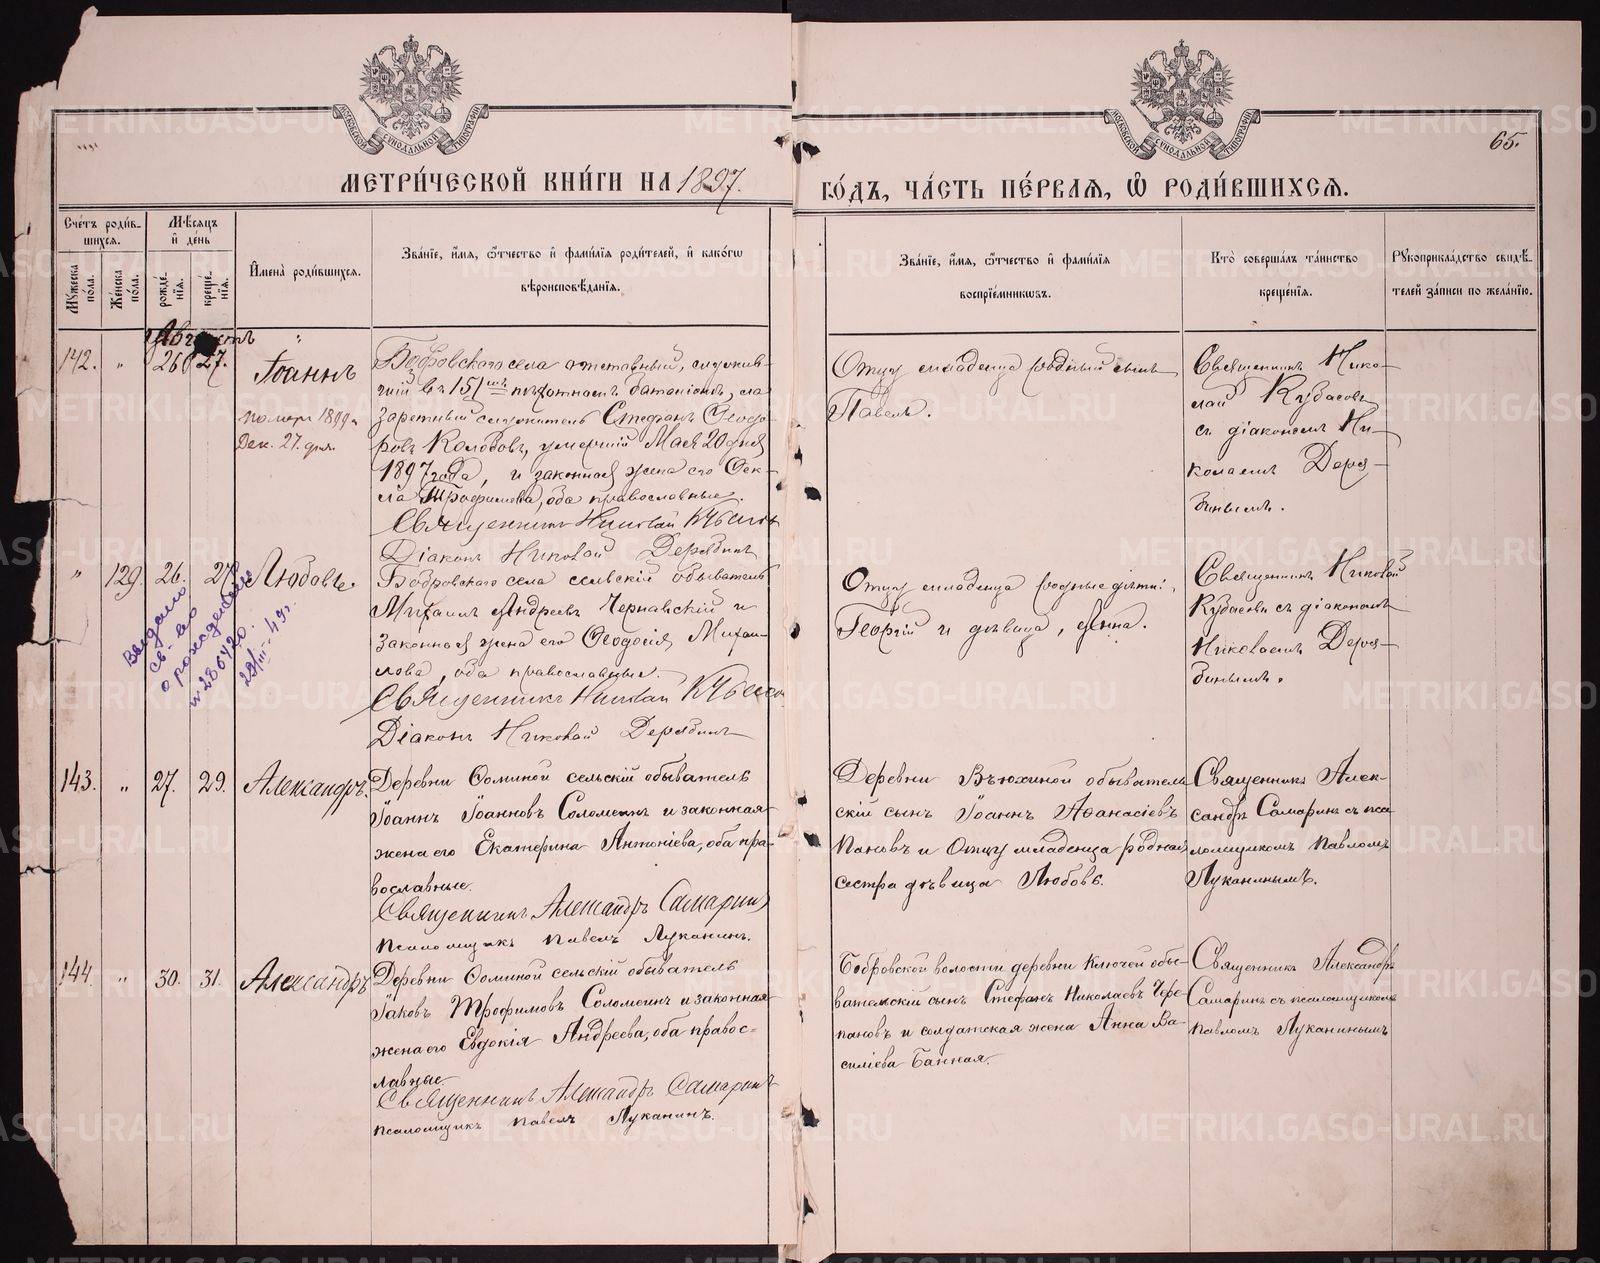 МОСКОВСКОЙ СѴНОДАЛЬНОЙ ТИПОГРАФІИ
МОСКОВСКОЙ СѴНОДАЛЬНОЙ ТИПОГРАФІИ
65.
МЕТРИ́ЧЕСКОЙ КНИ́ГИ НА 1897. ГО́ДЪ, ЧА́СТЬ ПЕ́РВАЯ, Ѽ РОДИ́ВШИХСЯ.
Сче́тъ роди́в-
шихся.
Му́жеска по́ла.
Же́нска по́ла.
Мѣ́сяцъ
и҆ де́нь
рожде́-
нїя.
креще́-
нїя.
И҆мена̀ роди́вшихся.
Зва́нїе, и҆́мя, ѻ҆́тчество и҆ фами́лїя роди́телей, и҆ како́гѡ
вѣроисповѣ́данїя.
Зва́нїе, и҆́мя, ѻ҆́тчество и҆ фами́лїя
воспрїе́мникѡвъ.
Кто̀ соверша́лъ та́инство
креще́нїя.
Рꙋкоприкла́дство свидѣ́-
телей за́писи по жела́нїю.
Августъ
142. " 26 27. Іоаннъ
Помер 1899 г.
Дек. 27. дня.
Бобровскаго села отставный, служив-
шій въ 151мъ пѣхотномъ баталіонѣ, ла-
заретный служитель Стефанъ Ѳеодо-
ровъ Колобовъ, умершій Мая 20 дня
1897 года, и законная жена его Ѳек-
ла Трофимова, оба православные.
Священникъ Николай Кубасовъ
Діаконъ Николай Дерябинъ
Отцу младенца родный сынъ
Павелъ.
Священникъ Нико-
лай Кубасовъ
съ діакономъ Ни-
колаемъ Деря-
бинымъ.
" 129. 26. 27. Любовь.
Выдано
св-во
о рождении
№ 286420.
22/III-49г.
Бобровскаго села сельскій обыватель
Михаилъ Андреевъ Чернавскій и
законная жена его Ѳеодосія Михаи-
лова, оба православные.
Священникъ Николай Кубасовъ
Діаконъ Николай Дерябинъ
Отцу младенца родные дѣти:
Георгій и дѣвица, Анна.
Священникъ Николай
Кубасовъ съ діакономъ
Николаемъ Деря-
бинымъ.
143. " 27. 29. Александръ.
Деревни Ѳоминой сельскій обыватель
Іоаннъ Іоанновъ Соломеинъ и законная
жена его Екатерина Антоніева, оба пра-
вославные.
Священникъ Александръ Самаринъ
Псаломщикъ Павелъ Луканинъ.
Деревни Вьюхиной обыватель
скій сынъ Іоаннъ Аѳанасіевъ
Пановъ и Отцу младенца родная
сестра дѣвица Любовь.
Священникъ Алек-
сандръ Самаринъ съ пса
ломщикомъ Павломъ
Луканинымъ.
144. " 30. 31. Александръ
Деревни Ѳоминой сельскій обыватель
Іаковъ Трофимовъ Соломеинъ и законная
жена его Евдокія Андреева, оба правос=
лавные.
Священникъ Александръ Самаринъ
Псаломщикъ Павелъ Луканинъ.
Бобровской волости деревни Ключей обы-
вательскій сынъ Стефанъ Николаевъ Чере-
пановъ и солдатская жена Анна Ва-
силіева Банная.
Священникъ Александръ
Самаринъ съ псаломщикомъ
Павломъ Луканинымъ
METRIKI.GASO-URAL.RU